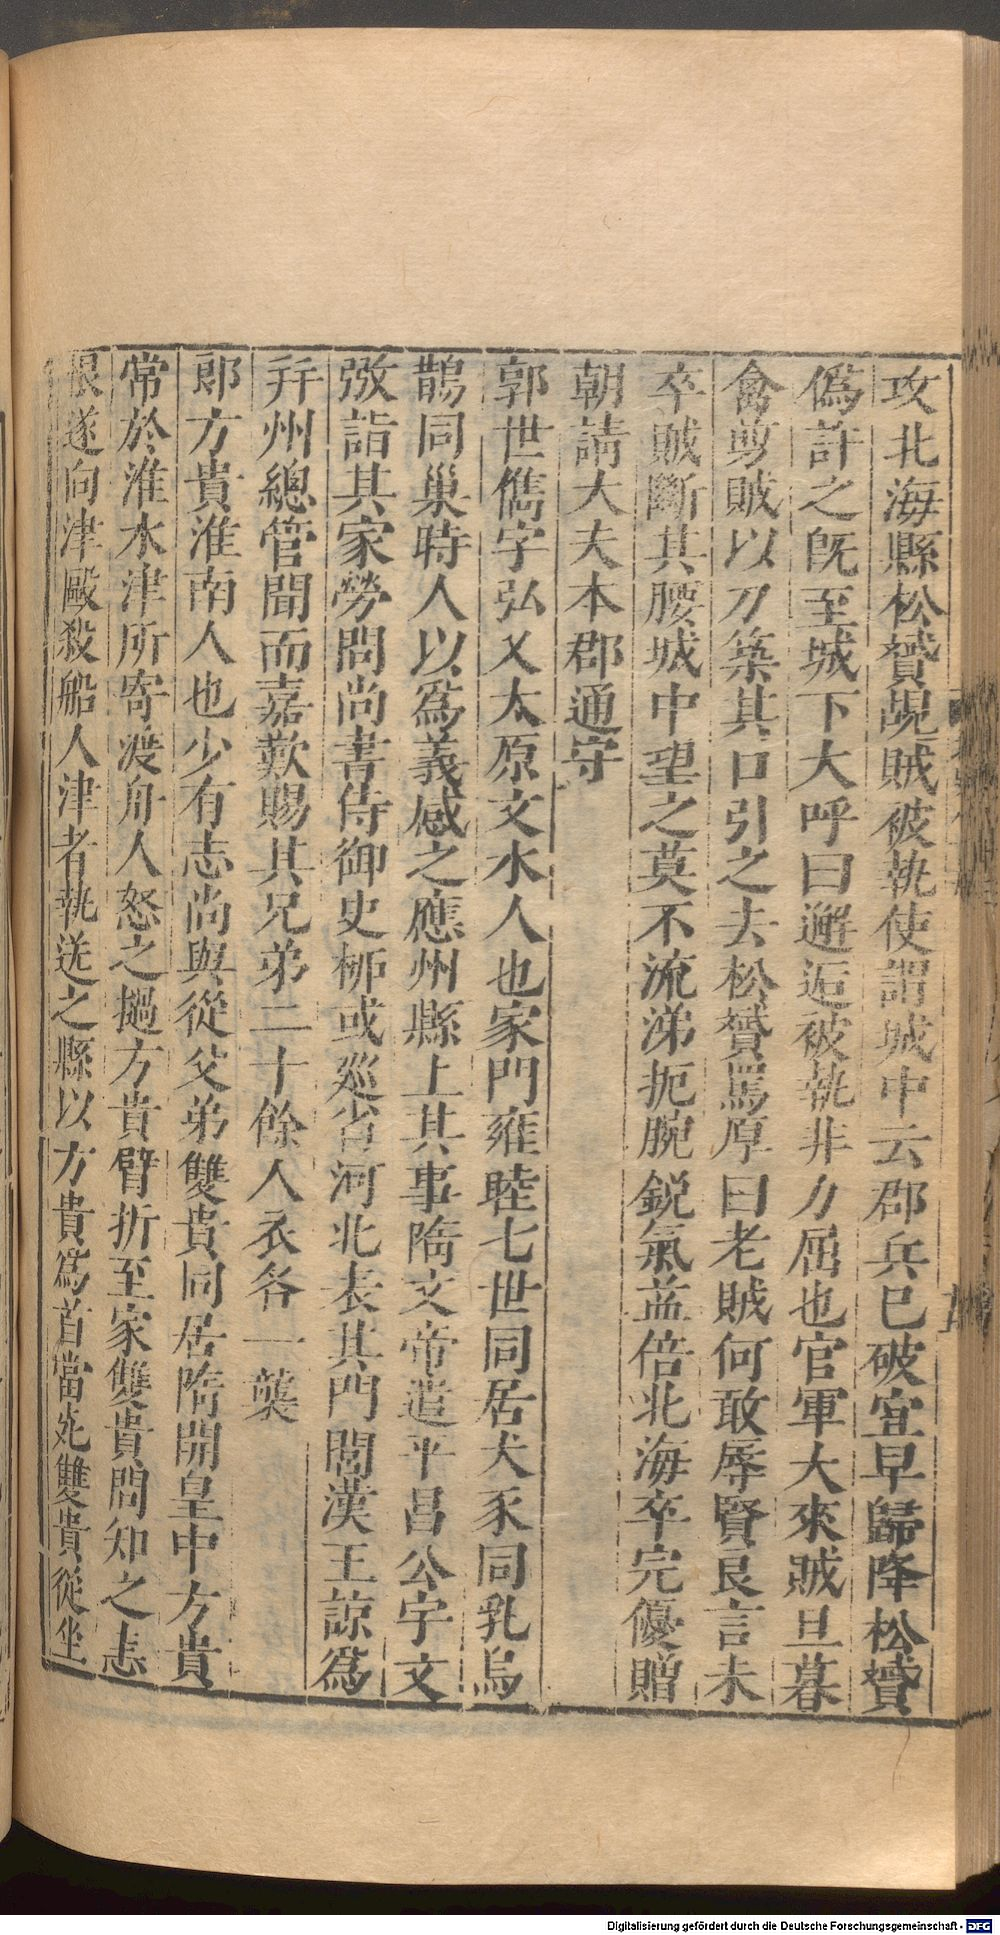 攻北海縣松贇覘賊被執使謂城中云郡兵已破宜早歸降松贇
偽許之旣至城下大呼曰邂逅被執非力屈也官軍大來賊旦暮
禽剪賊以刀築其口引之去松贇罵厚曰老賊何敢辱賢良言未
卒賊斷其腰城中望之莫不流涕扼腕銳氣益倍北海卒完優贈
朝請大夫本郡通守
郭世儁字弘乂太原文水人也家門雍睦七世同居犬豕同乳烏
鵲同巢時人以爲義感之應州縣上其事隋文帝遣平昌公宇文
㢸詣其家勞問尚書侍御史柳或巡省河北表其門閭漢王諒爲
幷州總管聞而嘉歎賜其兄弟二十餘人衣各一襲
郎方貴淮南人也少有志尚與從父弟雙貴同居隋開皇中方貴
常於淮水津所寄渡舟人怒之撾方貴臂折至家雙貴問知之恚
恨遂向津毆殺船人津者執送之縣以方貴爲首當死雙貴從坐
Digitalisierung gefördert durch die Deutsche Forschungsgemeinschaft - DFG